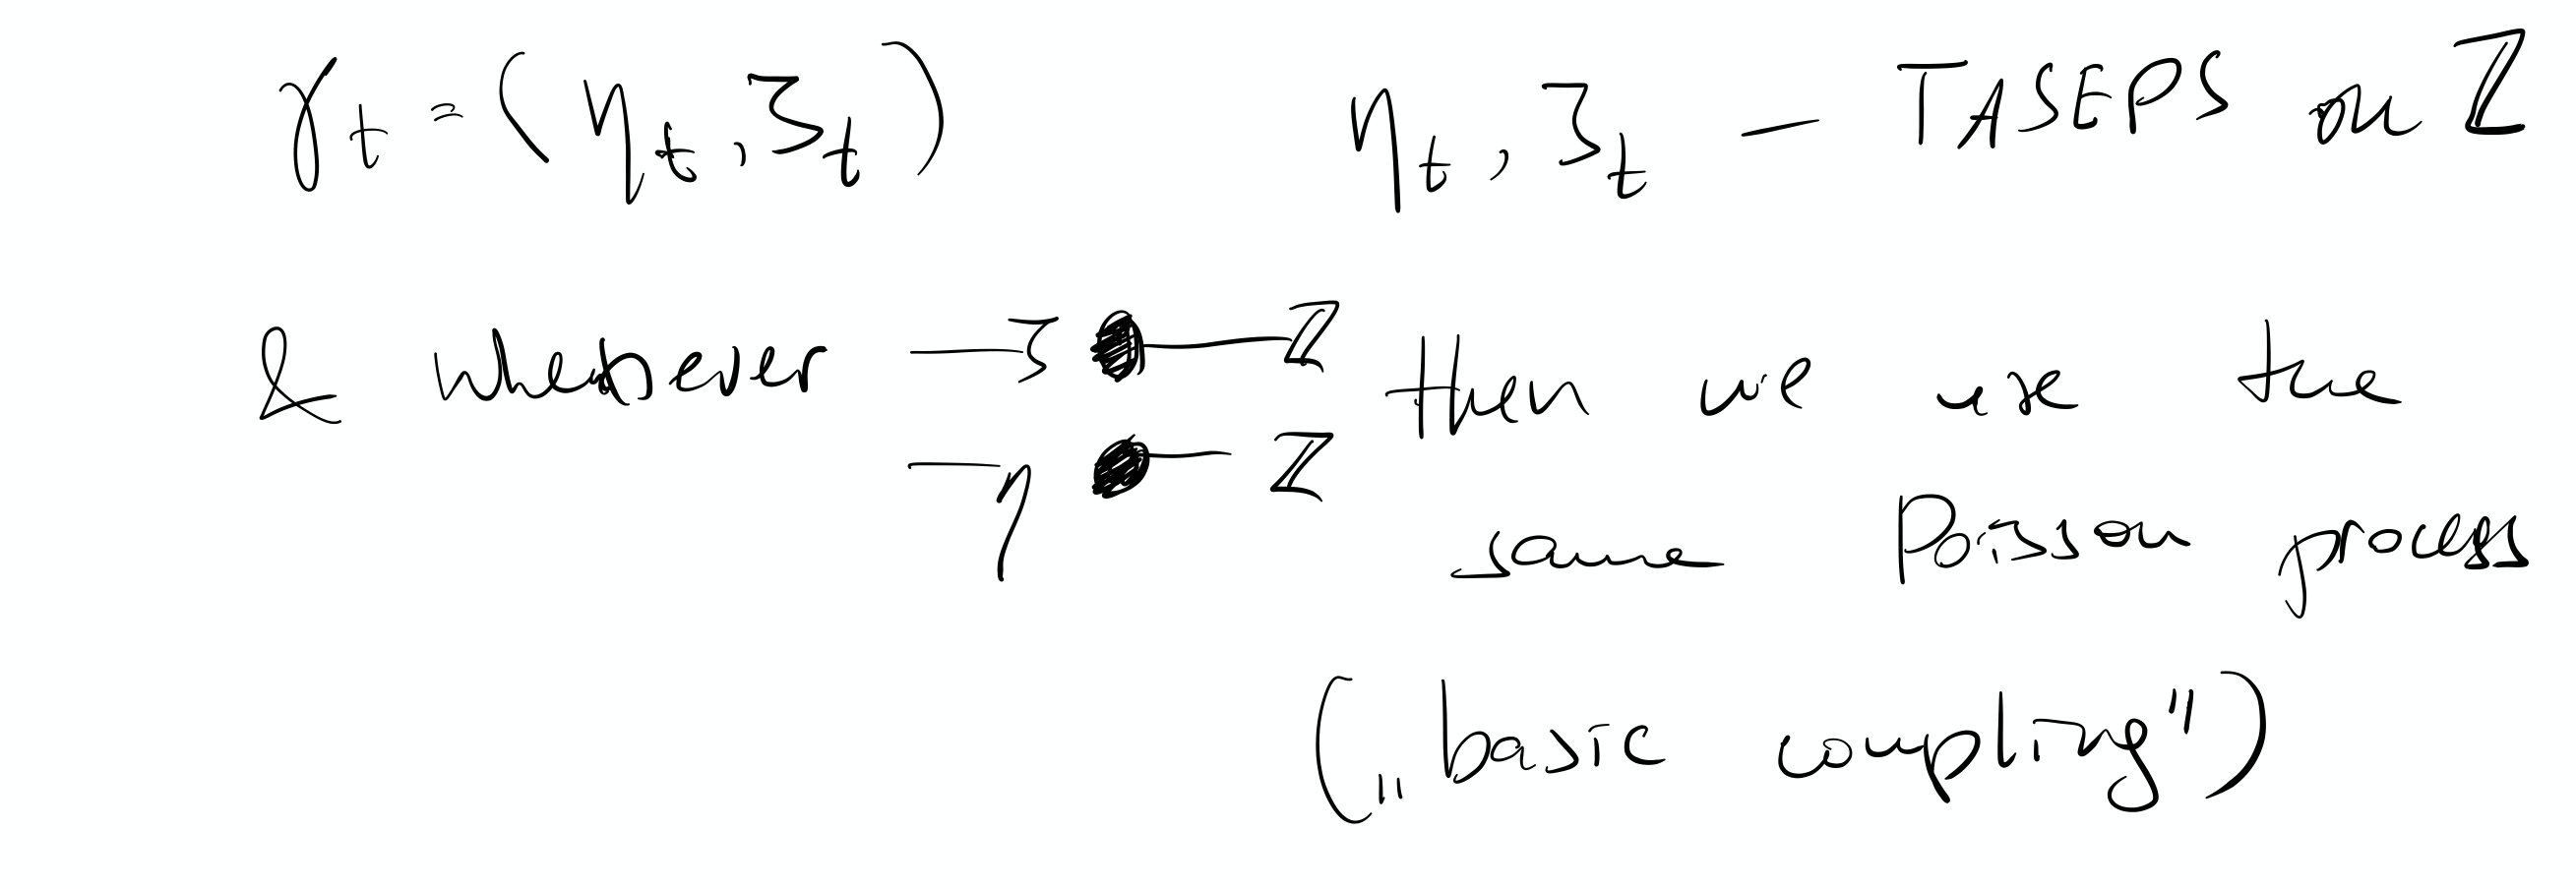 γ_t = (η_t, ζ_t) η_t, ζ_t — TASEPS on ℤ
& whenever —ζ ●— ℤ then we use the
—η ●— ℤ
same Poisson process
(„basic coupling")